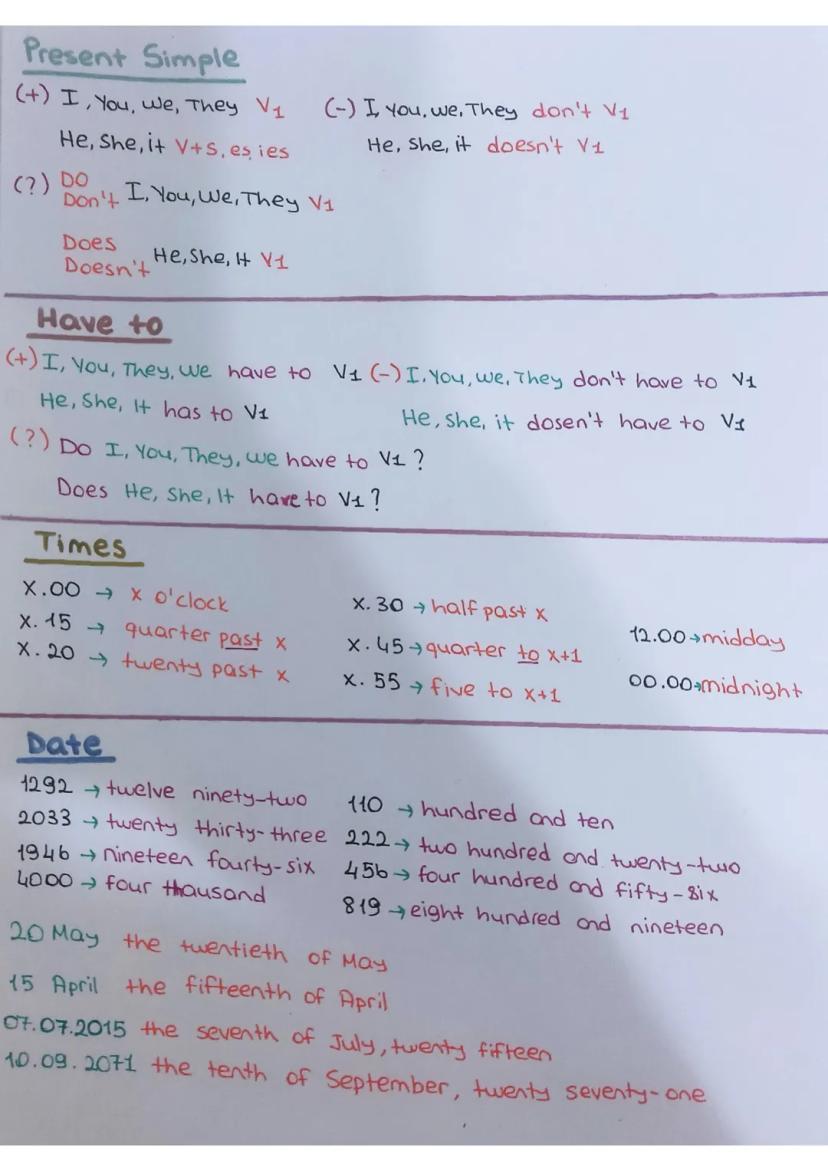 Present Simple
(+) I, You, We, They V1 (-) I, You, we, They don't V1
He, She, it V+s, es, ies He, She, it doesn't V1
(?) DO Don't I, You, We, They V1
Does Doesn't He, She, It V1
Have to
(+) I, You, They, We have to V1 (-) I, You, we, They don't have to V1
He, She, It has to V1 He, She, it dosen't have to V1
(?) Do I, You, They, we have to V1?
Does He, She, It have to V1?
Times
X.00 → x o'clock X.30 → half past x
X.15 → quarter past x X.45 → quarter to x+1 12.00 → midday
X.20 → twenty past x X.55 → five to x+1 00.00 → midnight
Date
1292 → twelve ninety-two 110 → hundred and ten
2033 → twenty thirty-three 222 → two hundred and twenty-two
1946 → nineteen fourty-six 456 → four hundred and fifty-six
4000 → four thausand 819 → eight hundred and nineteen
20 May the twentieth of May
15 April the fifteenth of April
07.07.2015 the seventh of July, twenty fifteen
10.09.2071 the tenth of September, twenty seventy-one